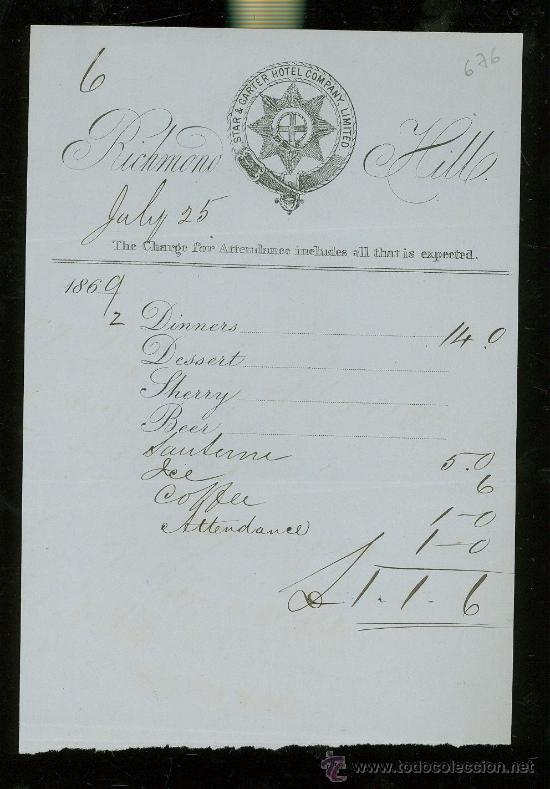 6
676
STAR & GARTER HOTEL COMPANY, LIMITED
Richmond Hill.
July 25
The Charge for Attendance includes all that is expected.
1869
2 Dinners 14.0
Dessert
Sherry
Beer
Sauterne 5.0
Ice 6
Coffee 1-0
Attendance 1-0
£1.1.6
TC todocoleccion
www.todocoleccion.net